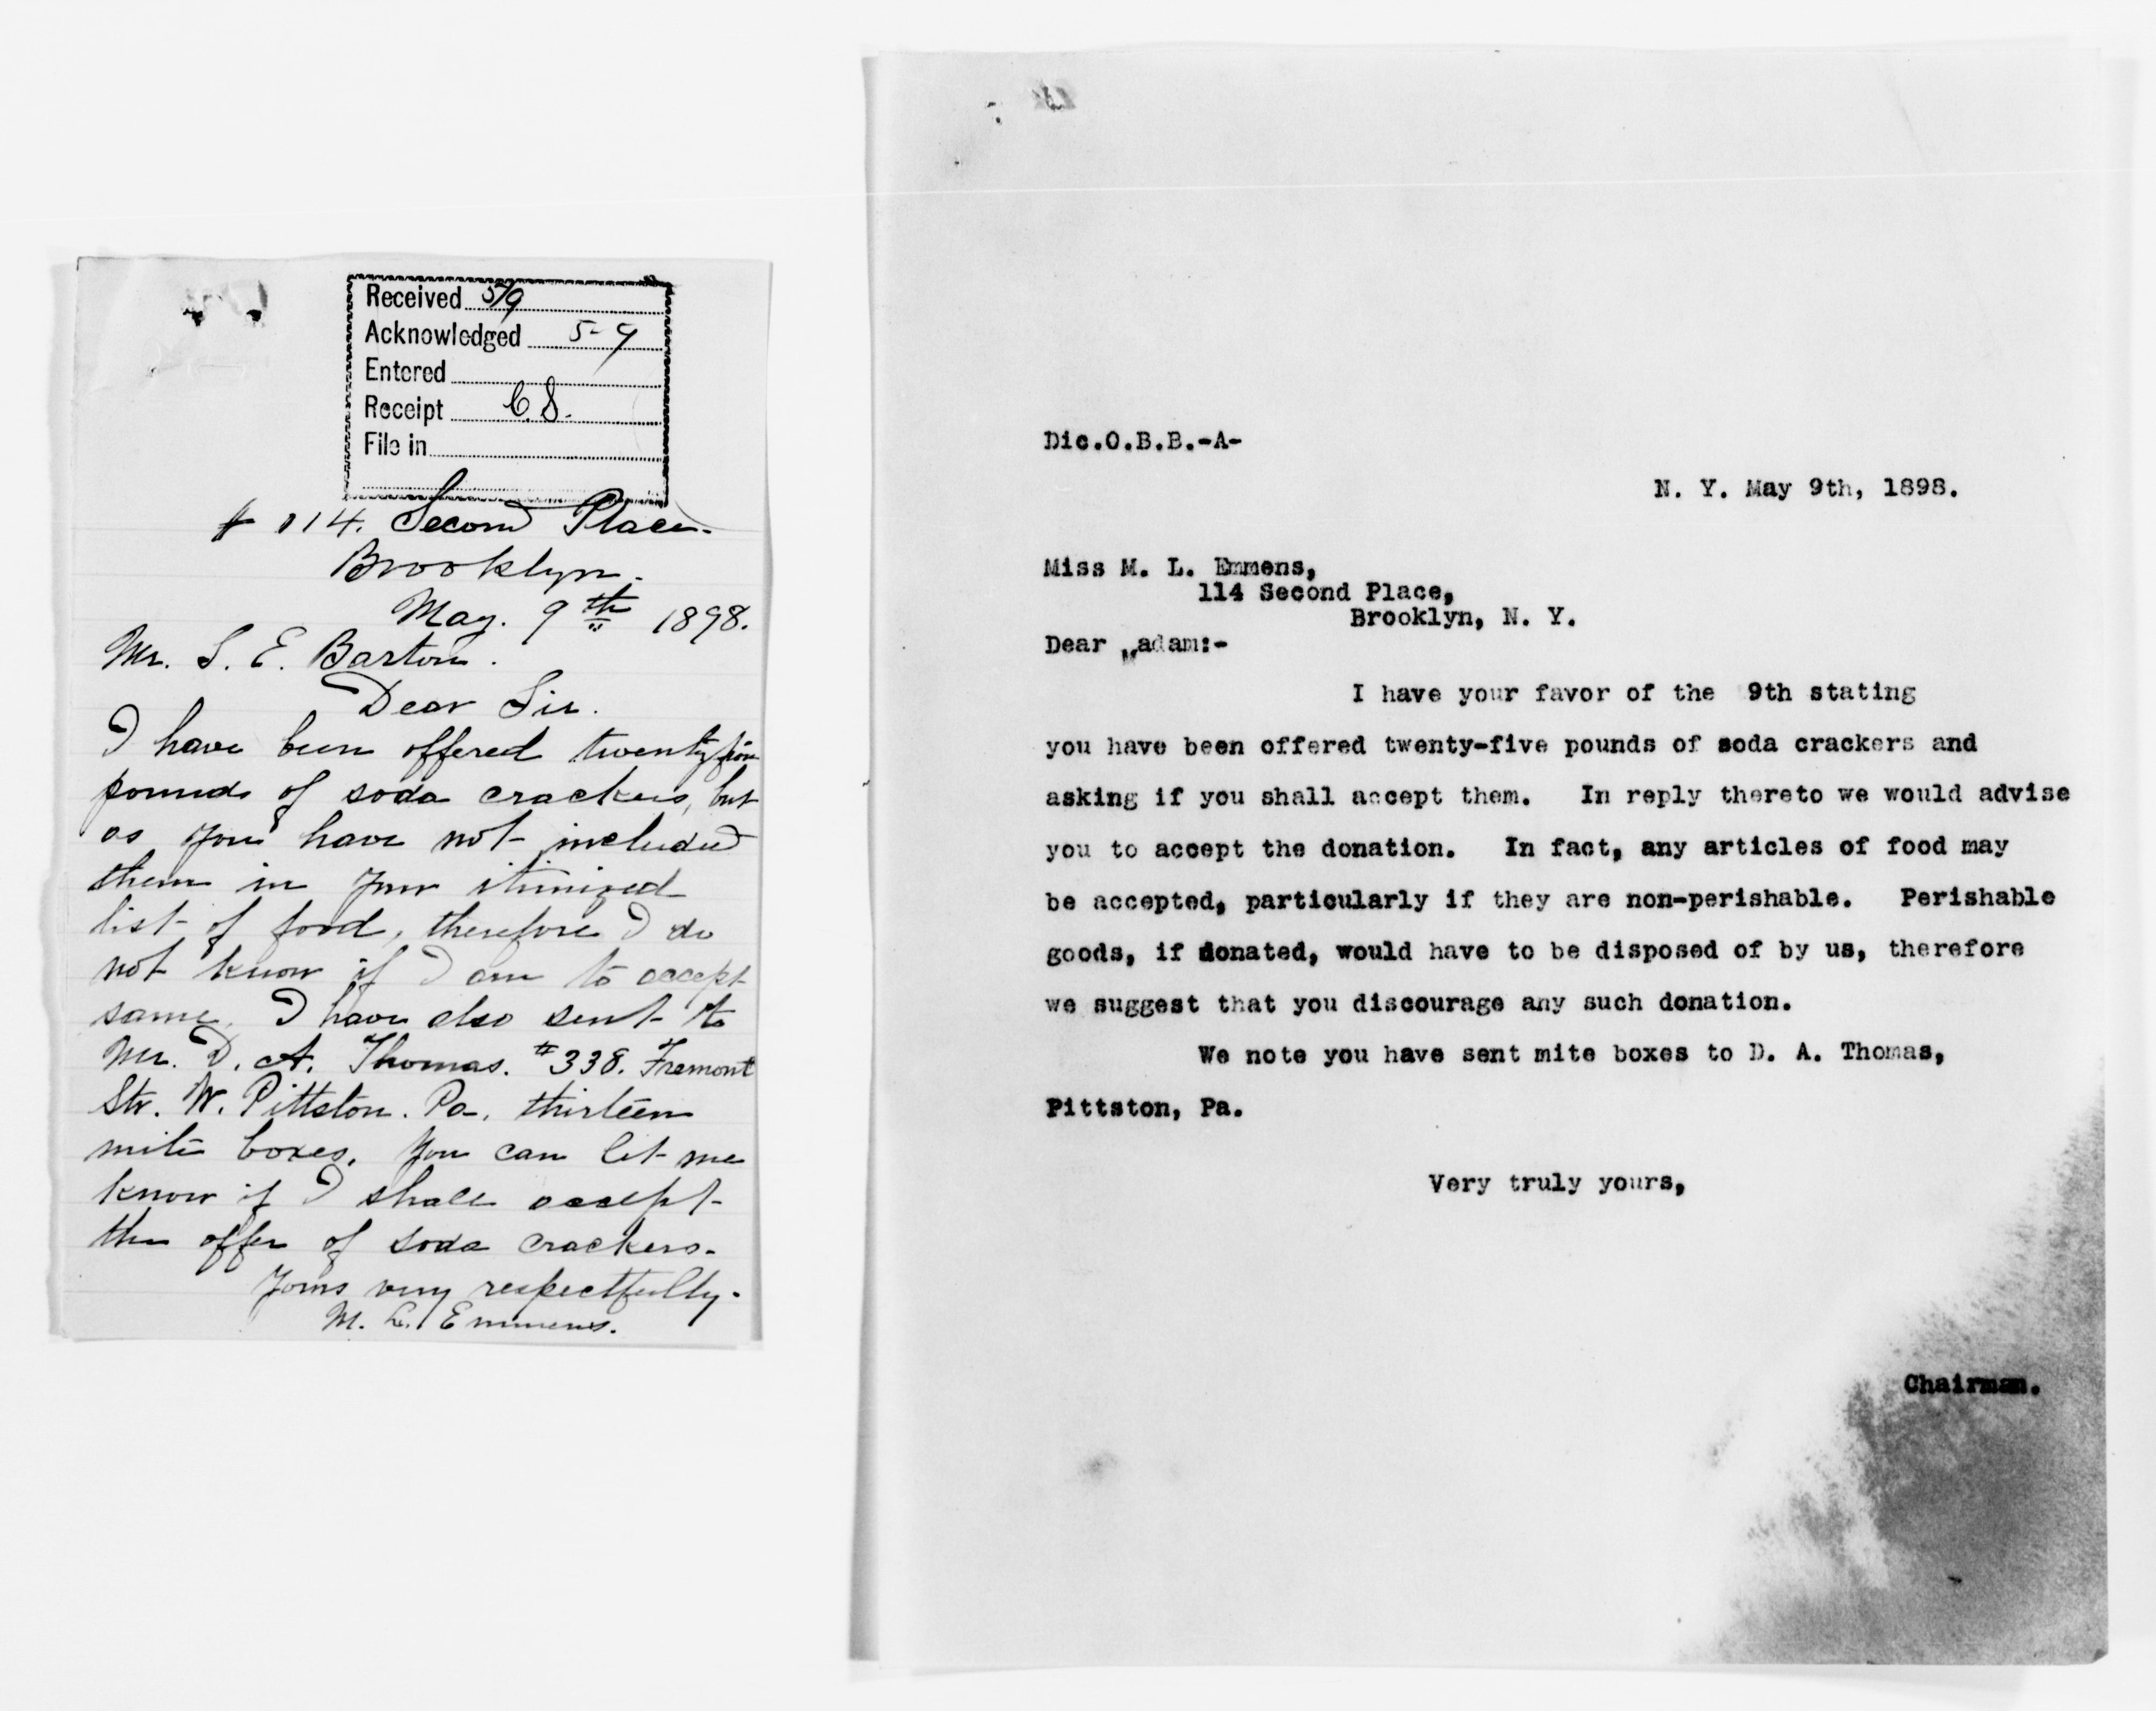 Received 5/9
Acknowledged 5-9
Entered
Receipt C.S.
File in
# 114. Second Place.
Brooklyn.
May. 9th 1898.
Mr. S. E. Barton.
Dear Sir.
I have been offered twenty five
pounds of soda crackers, but
as you have not included
them in your itimized
list of food, therefore I do
not know if I am to accept
same. I have also sent to
Mr. D. A. Thomas. #338. Fremont
Str. W. Pittston. Pa. thirteen
mite boxes. You can let me
know if I shall accept
the offer of soda crackers.
Yours very respectfully.
M. L. Emmens.
Dic.O.B.B.-A-
N. Y. May 9th, 1898.
Miss M. L. Emmens,
114 Second Place,
Brooklyn, N. Y.
Dear Madam:-
I have your favor of the 9th stating
you have been offered twenty-five pounds of soda crackers and
asking if you shall accept them. In reply thereto we would advise
you to accept the donation. In fact, any articles of food may
be accepted, particularly if they are non-perishable. Perishable
goods, if donated, would have to be disposed of by us, therefore
we suggest that you discourage any such donation.
We note you have sent mite boxes to D. A. Thomas,
Pittston, Pa.
Very truly yours,
Chairman.